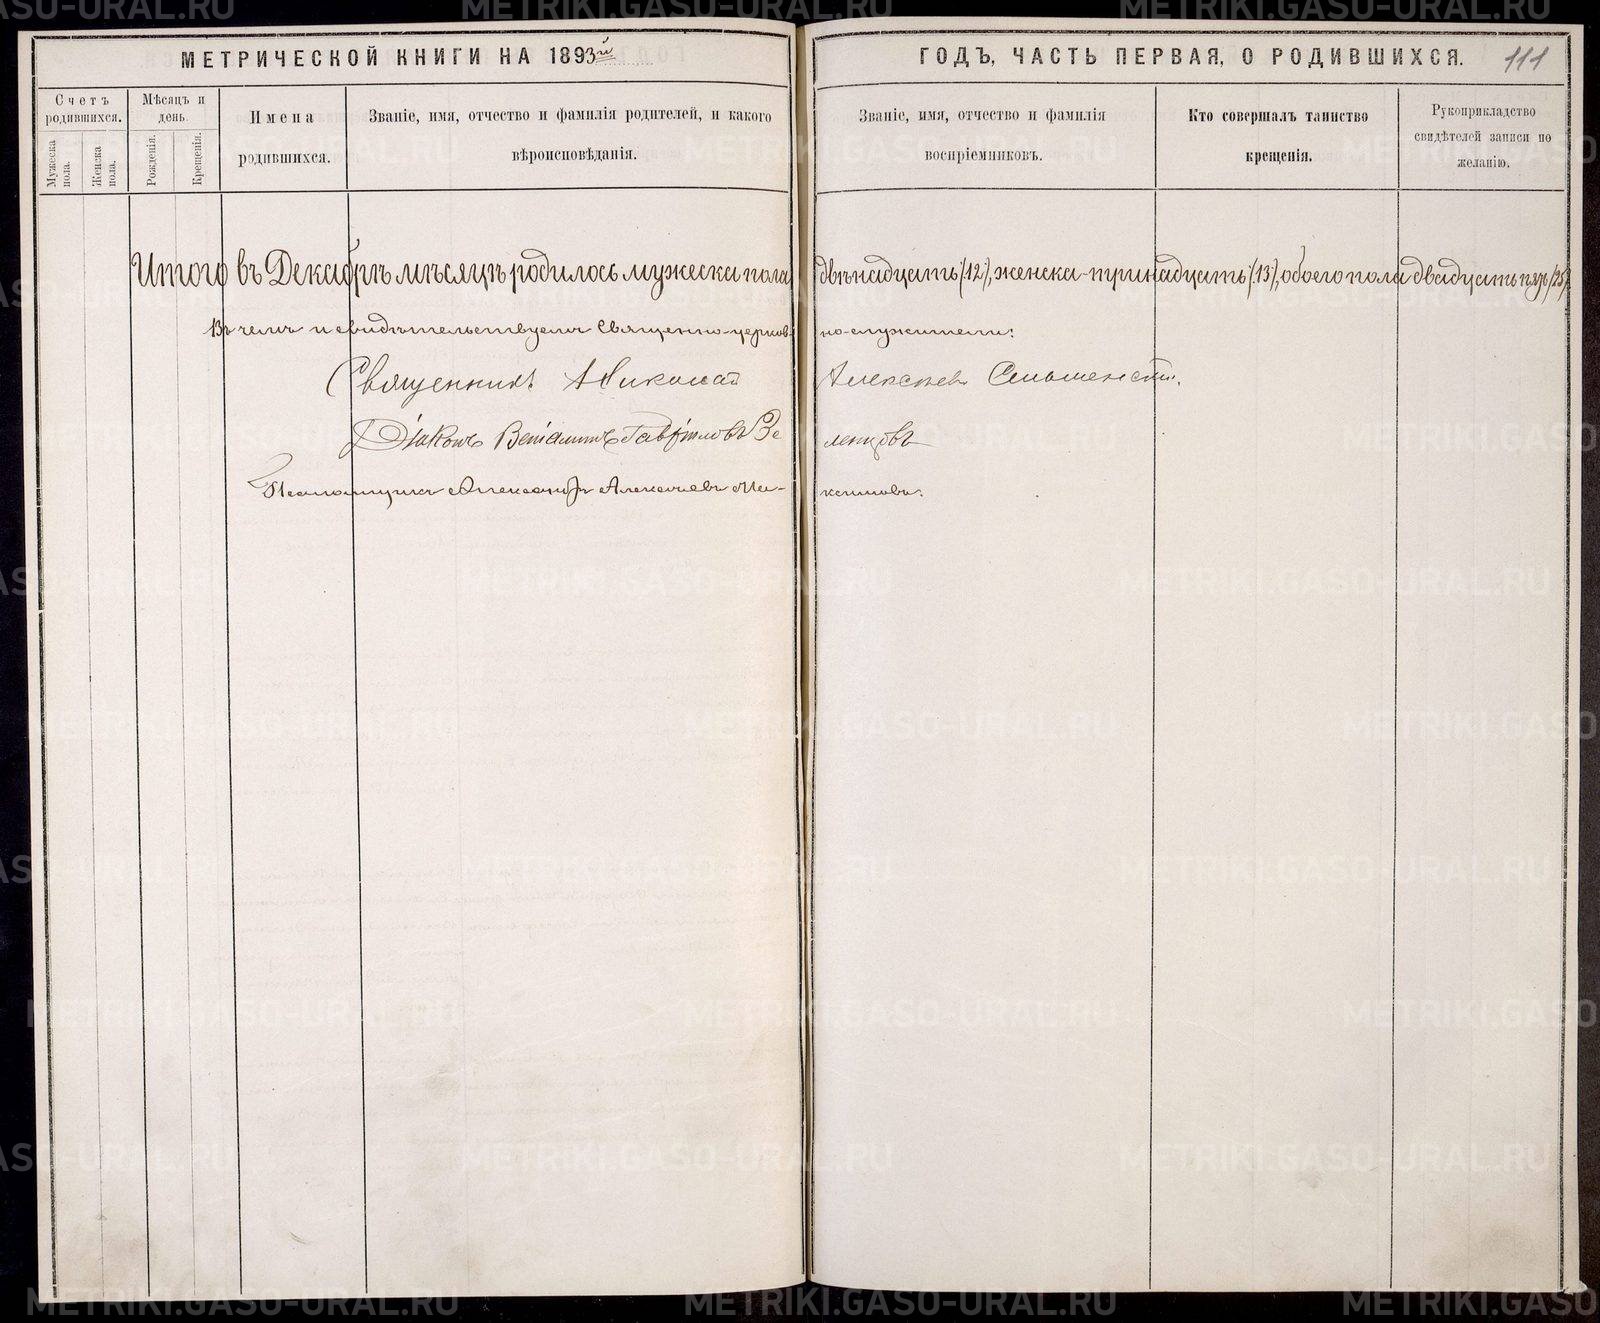 МЕТРИЧЕСКОЙ КНИГИ НА 1893й ГОДЪ, ЧАСТЬ ПЕРВАЯ, О РОДИВШИХСЯ. 111
Счетъ родившихся.
Мужеска пола.
Женска пола.
Мѣсяцъ и день.
Рожденія.
Крещенія.
Имена родившихся.
Званіе, имя, отчество и фамилія родителей, и какого
вѣроисповѣданія.
Званіе, имя, отчество и фамилія
воспріемниковъ.
Кто совершалъ таинство
крещенія.
Рукоприкладство
свидѣтелей записи по
желанію.
Итого въ Декабрѣ мѣсяцѣ родилось мужеска пола двѣнадцать (12), женска - тринадцать (13), обоего пола двадцать пять (25)
Въ чемъ и свидѣтельствуемъ Священно-церковно-служители:
Священникъ Николай Алексѣевъ
Діаконъ Веніаминъ Гавріиловъ Зеленцовъ
Псаломщикъ Александръ Алексѣевъ Максимовъ.
METRIKI.GASO-URAL.RU